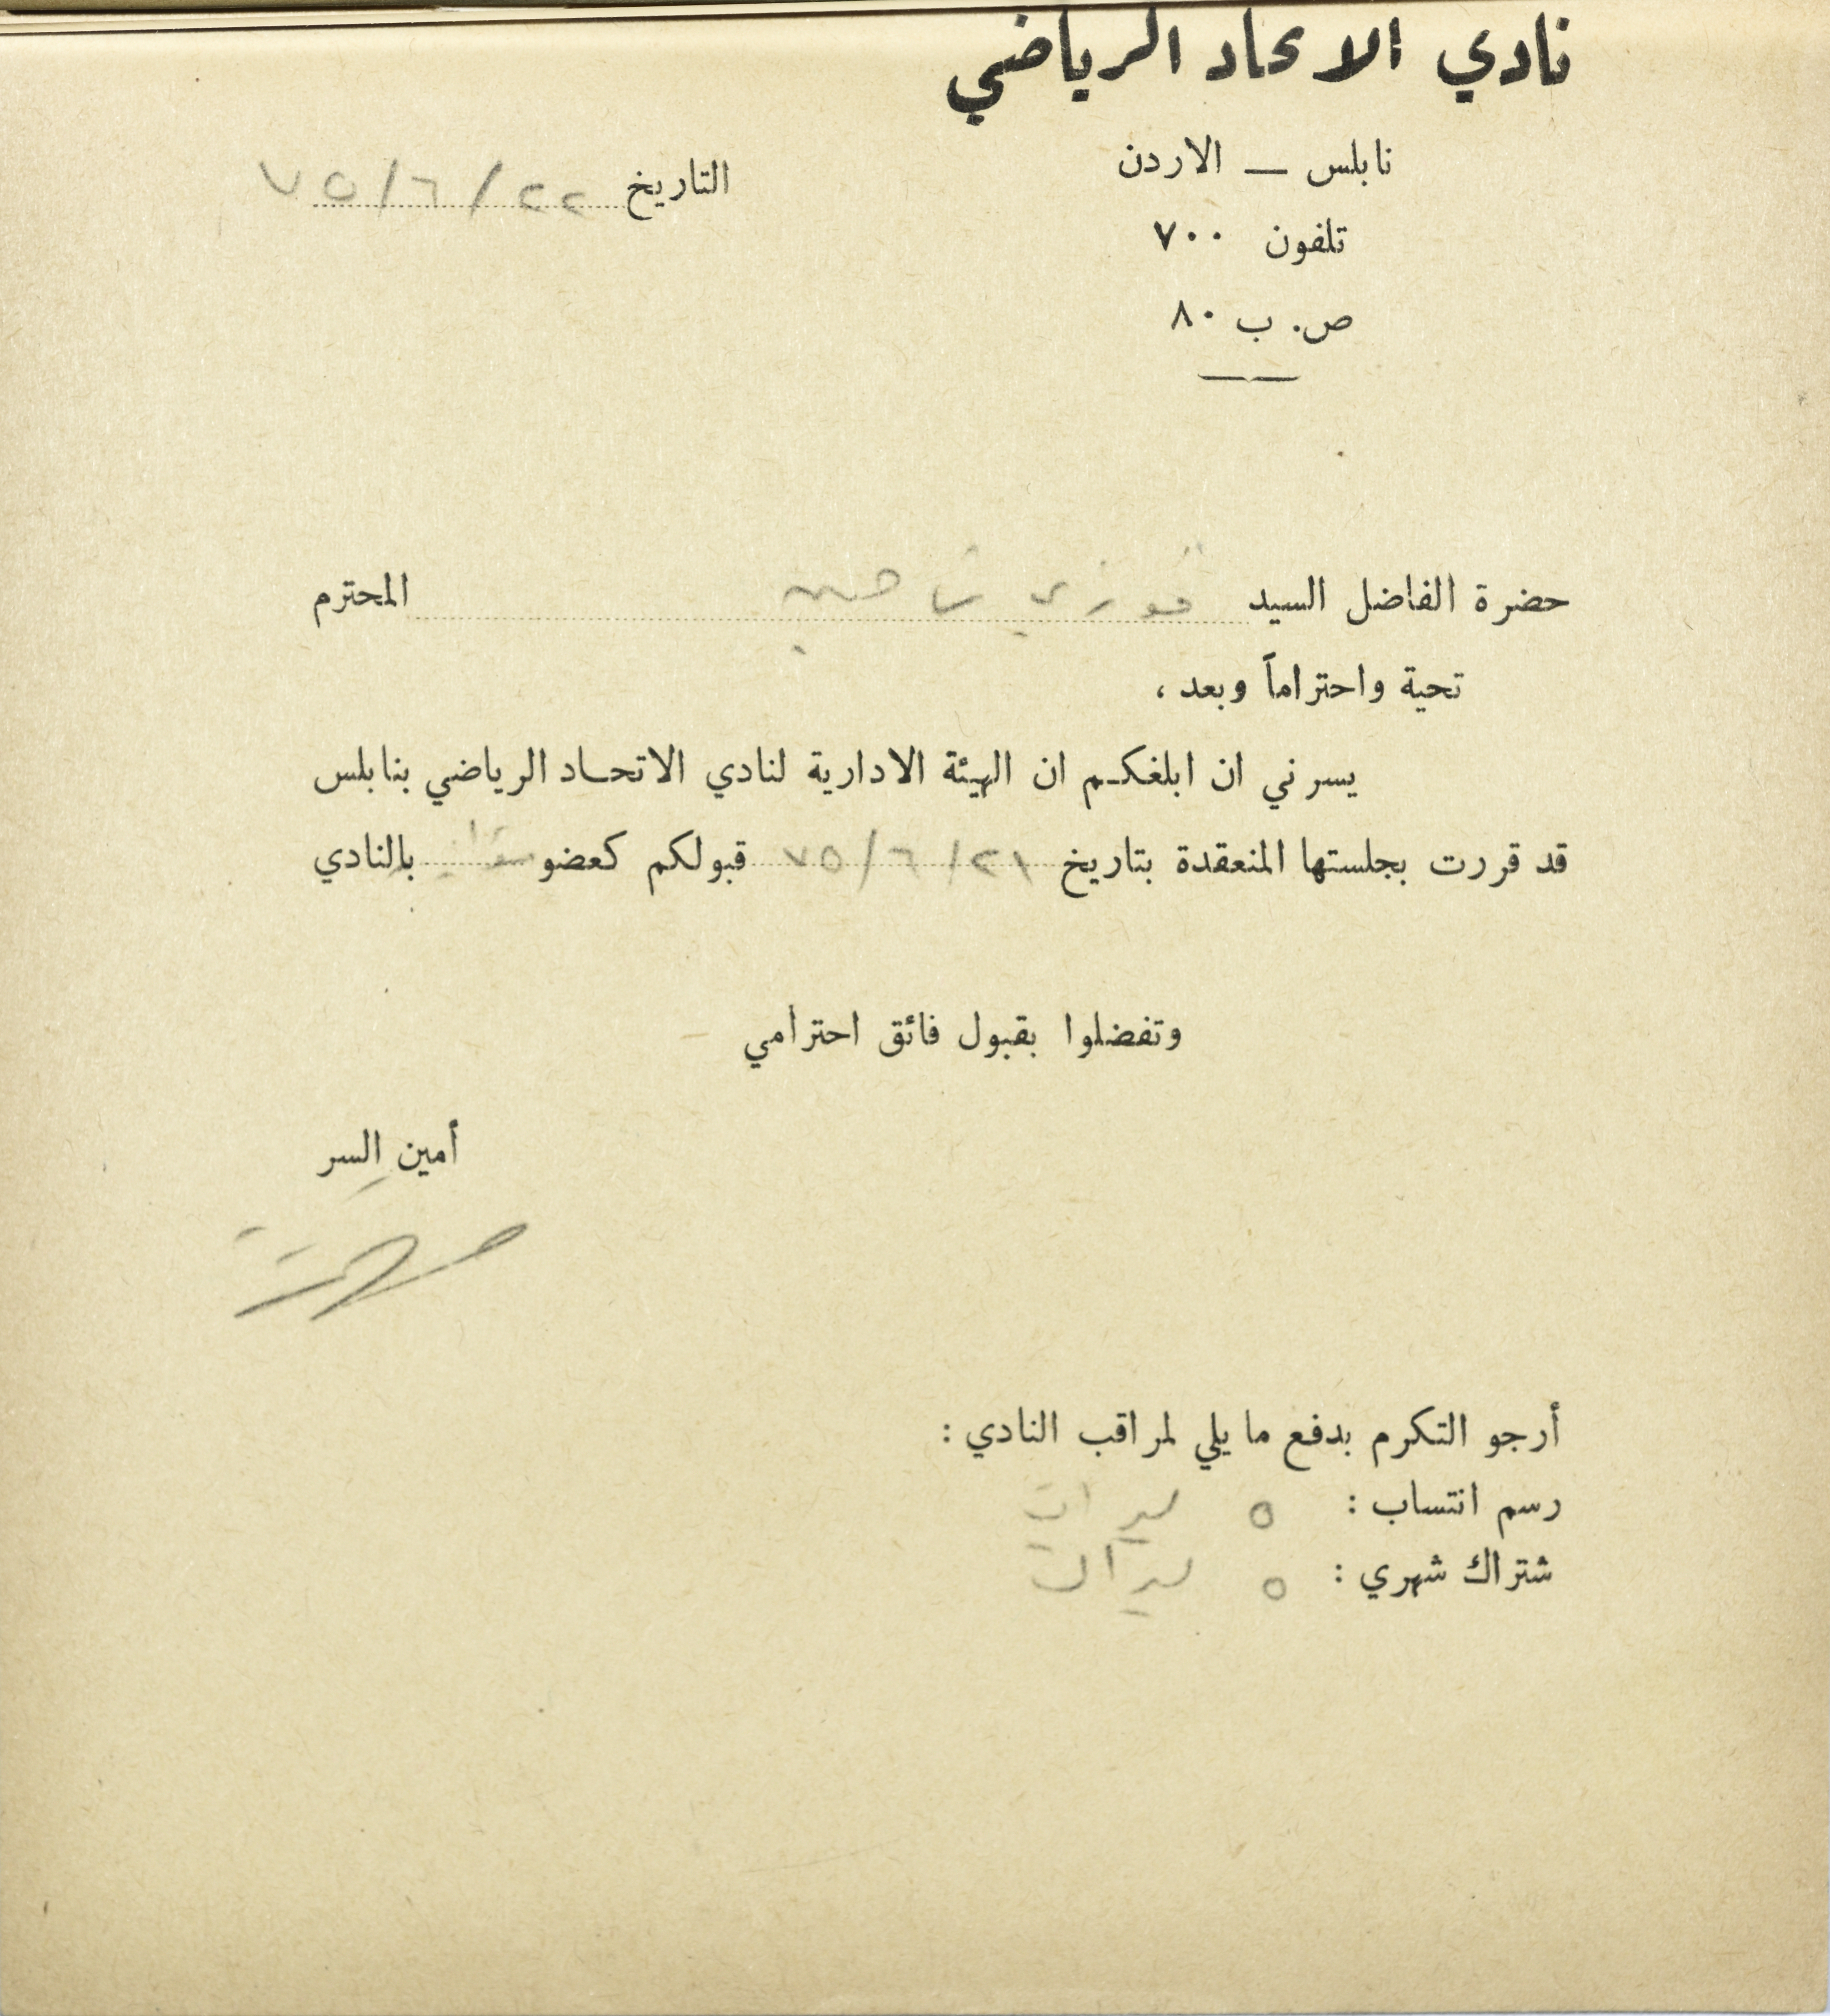 نادي الاتحاد الرياضي
نابلس — الاردن
تلفون ٧٠٠
ص. ب ٨٠
التاريخ ٢٢/٦/٧٥
حضرة الفاضل السيد فوزي شاهين المحترم
تحية واحتراماً وبعد ،
يسرني ان ابلغكم ان الهيئة الادارية لنادي الاتحاد الرياضي بنابلس
قد قررت بجلستها المنعقدة بتاريخ ٢١/٦/٧٥ قبولكم كعضو بالنادي
وتفضلوا بقبول فائق احترامي
أمين السر
أرجو التكرم بدفع ما يلي لمراقب النادي :
رسم انتساب : ٥ ليرات
شتراك شهري : ٥ ليرات